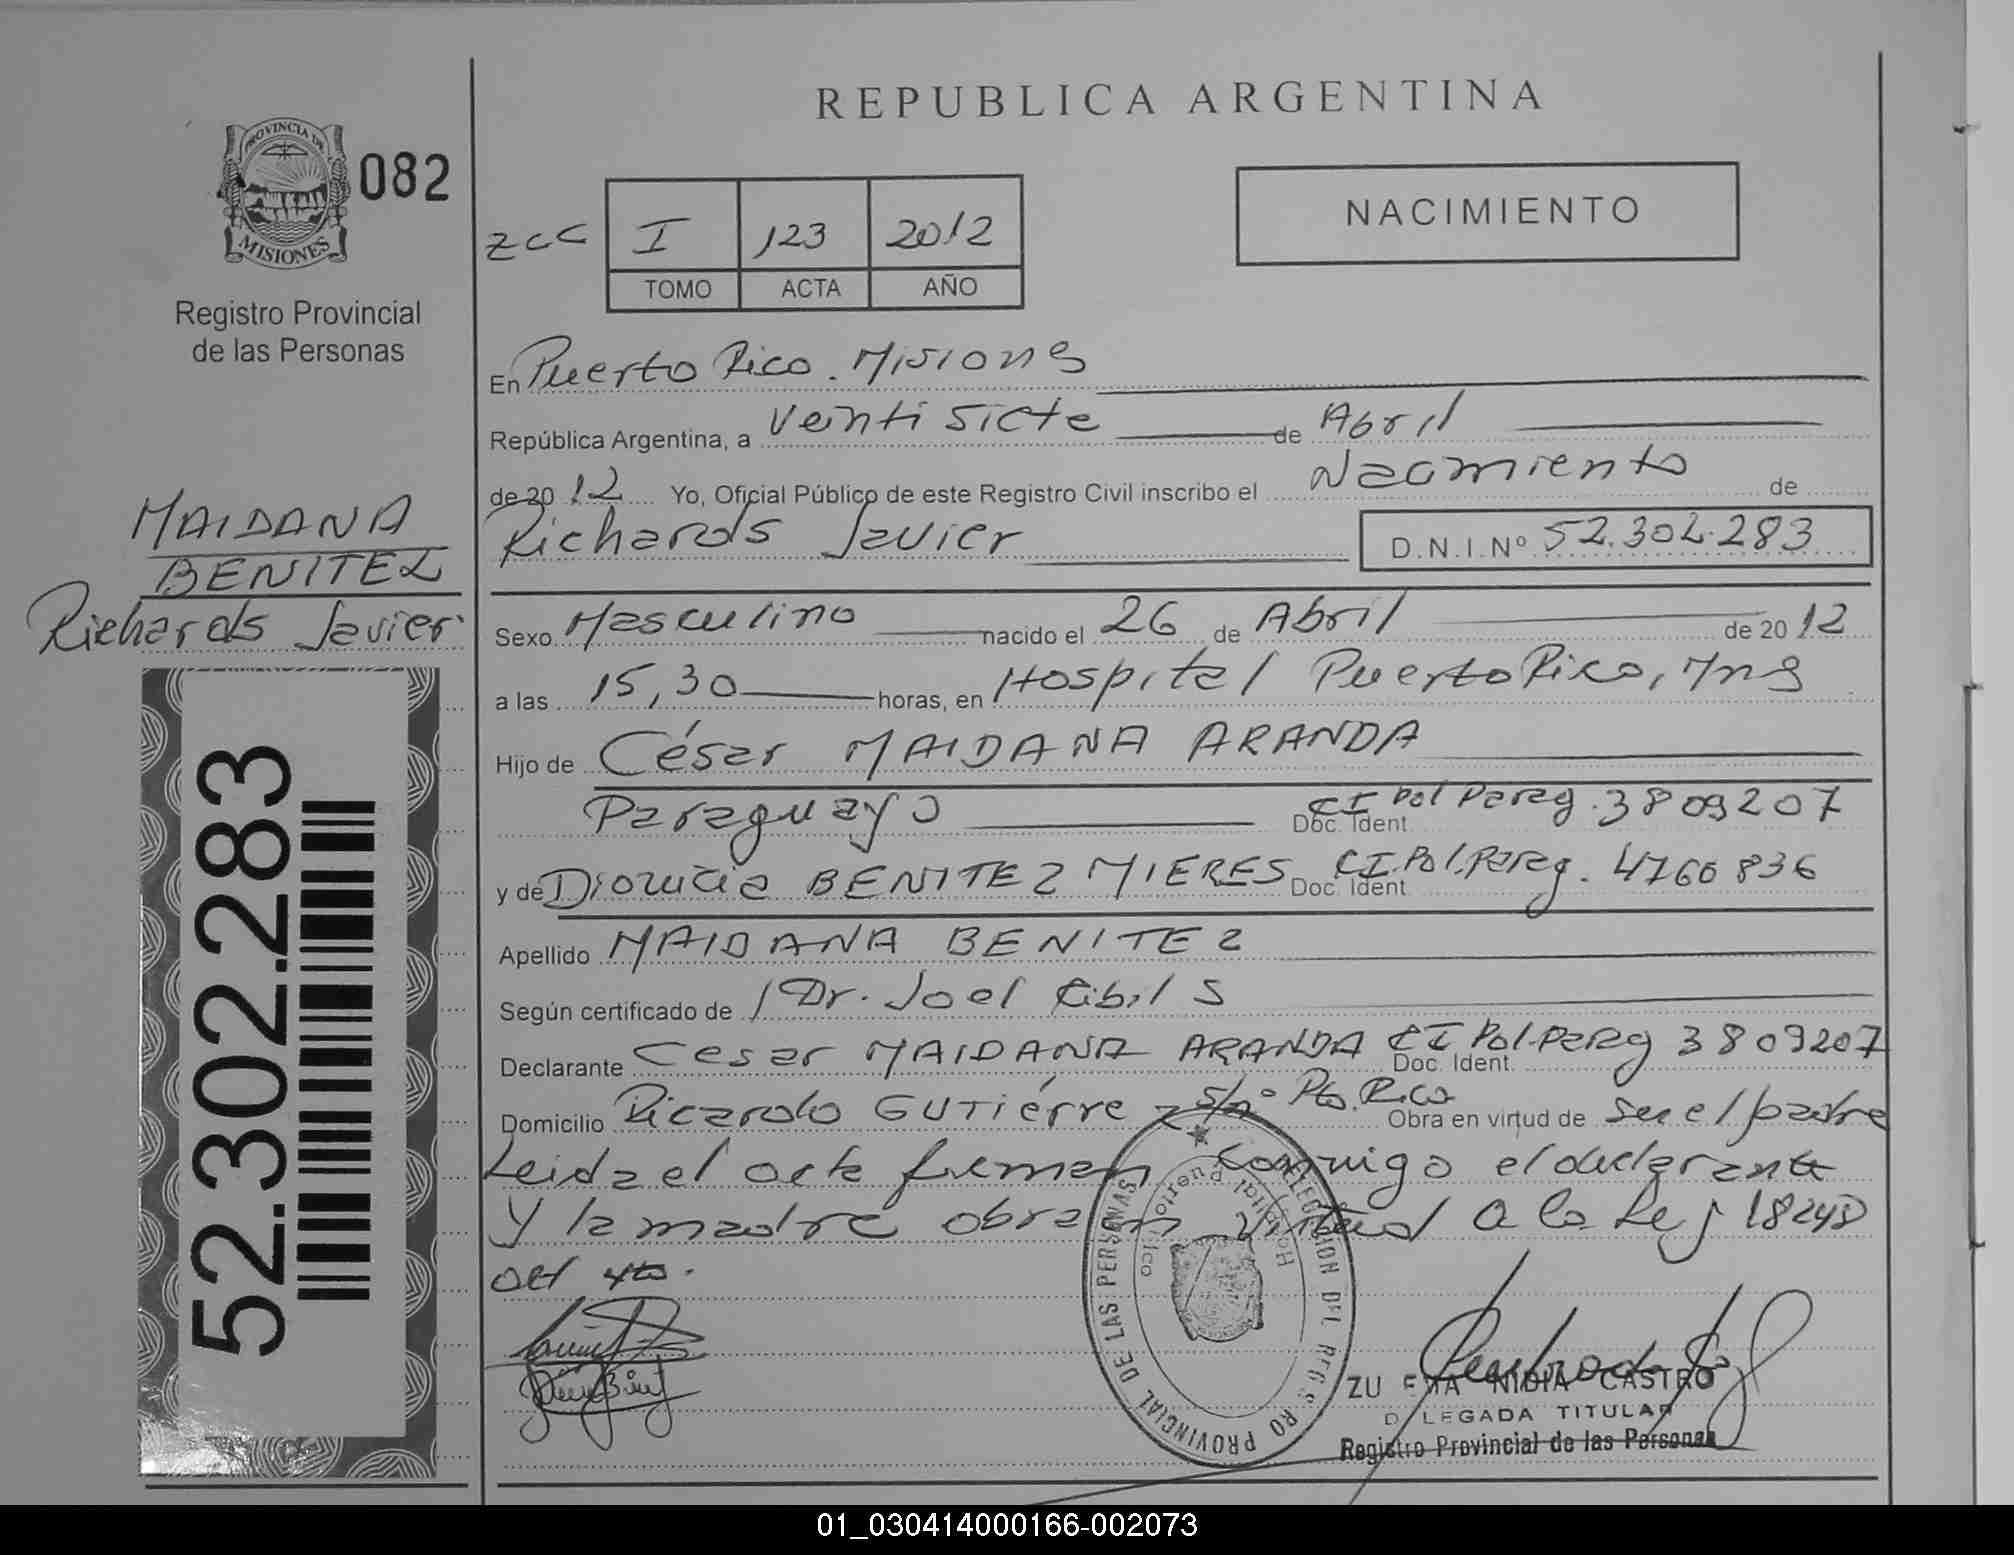 REPUBLICA ARGENTINA
PROVINCIA DE
MISIONES
082
Registro Provincial
de las Personas
zcc I 123 2012
TOMO ACTA AÑO
NACIMIENTO
En Puerto Rico. Misiones
República Argentina, a Veintisiete de Abril
de 2012 Yo, Oficial Público de este Registro Civil inscribo el Nacimiento de
Richards Javier D.N.I.Nº 52.302.283
MAIDANA
BENITEZ
Richards Javier
Sexo Masculino nacido el 26 de Abril de 2012
a las 15,30 horas, en Hospital Puerto Rico, Mns
Hijo de César MAIDANA ARANDA
Paraguayo Doc. Ident. CI Pol Parag. 3809207
y de Dionicia BENITEZ MIERES Doc. Ident. CI.Pol.Parag. 4760836
Apellido MAIDANA BENITEZ
Según certificado de Dr. Joel Cibils
Declarante Cesar MAIDANA ARANDA Doc. Ident. CI Pol.Parag 3809207
Domicilio Ricardo GUTiérrez s/nº Pto. Rico Obra en virtud de ser el padre
Leida el acta firman conmigo el declarante
Y la madre obra en virtud a la Ley 18248
art 4to.
52.302.283
DELEGACION DEL REGISTRO PROVINCIAL DE LAS PERSONAS
Hospital Puerto Rico
NIDIA CASTRO
D LEGADA TITULAR
Registro Provincial de las Personas
01_030414000166-002073